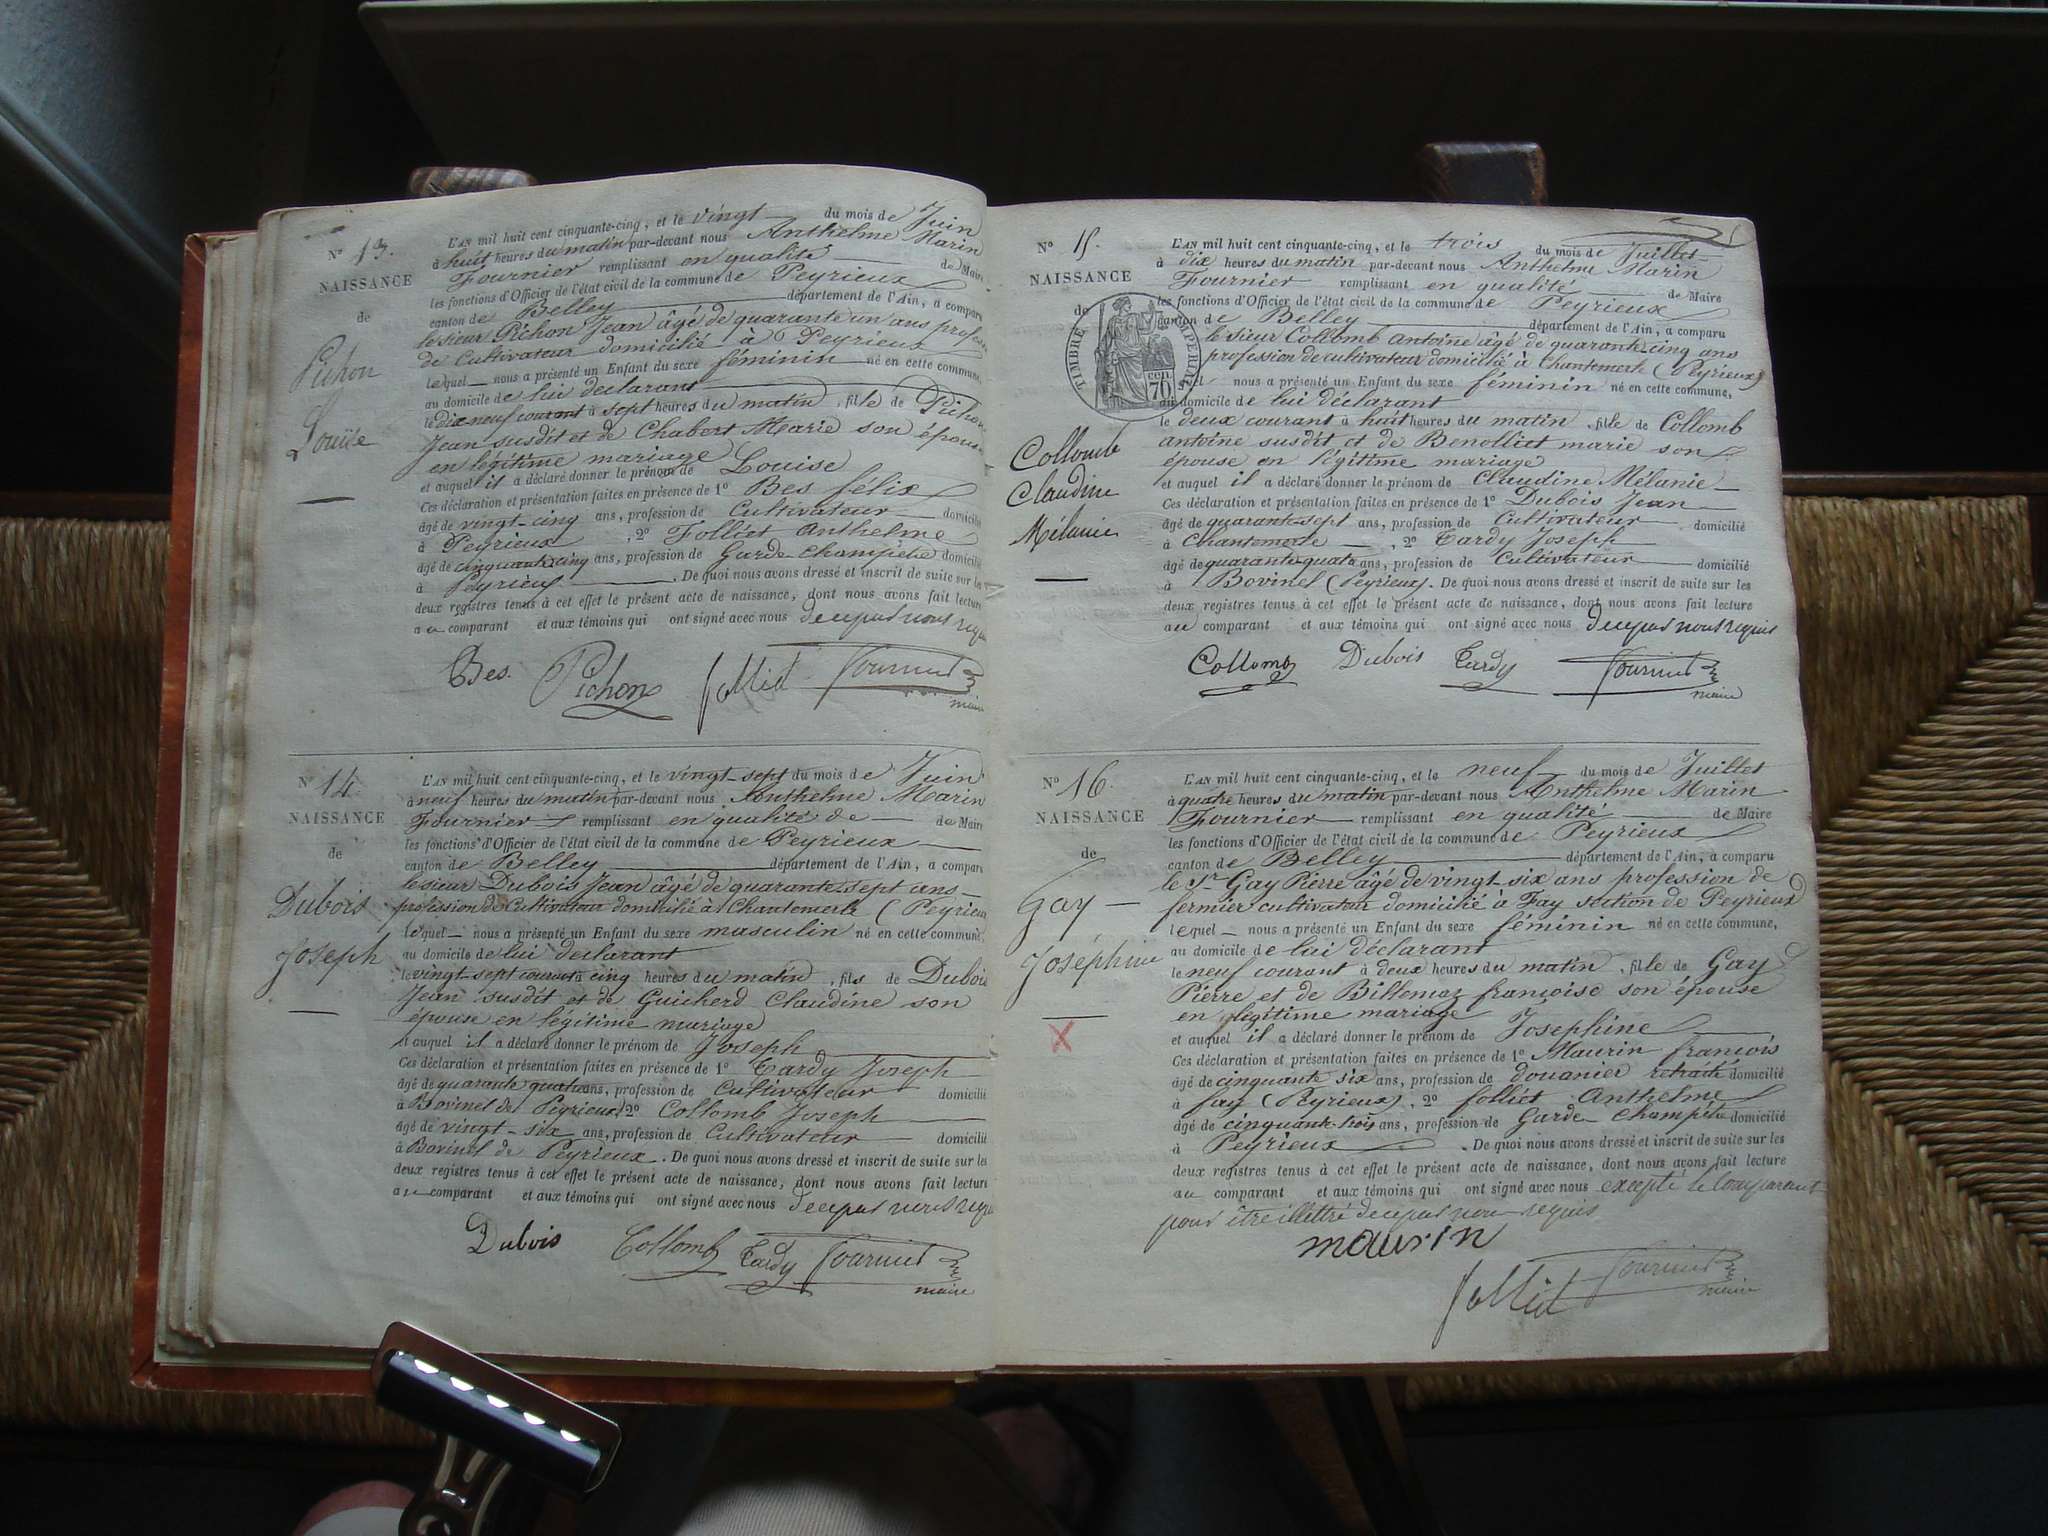 N° 13.
NAISSANCE
de
Pichon
Louise
L'AN mil huit cent cinquante-cinq, et le vingt du mois de Juin
à huit heures du matin par-devant nous Anthelme Marin
Fournier remplissant en qualité de Maire
les fonctions d'Officier de l'état civil de la commune de Peyrieux
canton de Belley département de l'Ain, a comparu
le sieur Pichon Jean âgé de quarante un ans profession
de Cultivateur domicilié à Peyrieux
lequel nous a présenté un Enfant du sexe féminin né en cette commune,
au domicile de lui déclarant
le dix neuf courant à sept heures du matin, fille de Pichon
Jean susdit et de Chabert Marie son épouse
en légitime mariage
et auquel il a déclaré donner le prénom de Louise
Ces déclaration et présentation faites en présence de 1° Bes félix
âgé de vingt-cinq ans, profession de Cultivateur domicilié
à Peyrieux, 2° Folliet Anthelme
âgé de cinquante cinq ans, profession de Garde Champêtre domicilié
à Peyrieux. De quoi nous avons dressé et inscrit de suite sur les
deux registres tenus à cet effet le présent acte de naissance, dont nous avons fait lecture
au comparant et aux témoins qui ont signé avec nous de ce par nous requis
Bes. Pichon folliet Fournier
maire
N° 14.
NAISSANCE
de
Dubois
Joseph
L'AN mil huit cent cinquante-cinq, et le vingt-sept du mois de Juin
à neuf heures du matin par-devant nous Anthelme Marin
Fournier remplissant en qualité de de Maire
les fonctions d'Officier de l'état civil de la commune de Peyrieux
canton de Belley département de l'Ain, a comparu
le sieur Dubois Jean âgé de quarante sept ans
profession de Cultivateur domicilié à Chantemerle (Peyrieux
lequel nous a présenté un Enfant du sexe masculin né en cette commune,
au domicile de lui déclarant
le vingt-sept courant à cinq heures du matin, fils de Dubois
Jean susdit et de Guicherd Claudine son
épouse en légitime mariage
et auquel il a déclaré donner le prénom de Joseph
Ces déclaration et présentation faites en présence de 1° Tardy Joseph
âgé de quarante quatre ans, profession de Cultivateur domicilié
à Bovinel de Peyrieux, 2° Collomb Joseph
âgé de vingt-six ans, profession de Cultivateur domicilié
à Bovinel de Peyrieux. De quoi nous avons dressé et inscrit de suite sur les
deux registres tenus à cet effet le présent acte de naissance, dont nous avons fait lecture
au comparant et aux témoins qui ont signé avec nous de ce par nous requis
Dubois Collomb Tardy Fournier
maire
N° 15.
NAISSANCE
de
TIMBRE IMPERIAL
70 cen.
Collomb
Claudine
Mélanie
L'AN mil huit cent cinquante-cinq, et le trois du mois de Juillet
à dix heures du matin par-devant nous Anthelme Marin
Fournier remplissant en qualité de Maire
les fonctions d'Officier de l'état civil de la commune de Peyrieux
canton de Belley département de l'Ain, a comparu
le sieur Collomb Antoine âgé de quarante-cinq ans
profession de cultivateur domicilié à Chantemerle (Peyrieux)
lequel nous a présenté un Enfant du sexe féminin né en cette commune,
au domicile de lui déclarant
le deux courant à huit heures du matin, fille de Collomb
antoine susdit et de Benolliet marie son
épouse en légitime mariage
et auquel il a déclaré donner le prénom de Claudine Mélanie
Ces déclaration et présentation faites en présence de 1° Dubois Jean
âgé de quarante sept ans, profession de Cultivateur domicilié
à Chantemerle, 2° Tardy Joseph
âgé de quarante quatre ans, profession de Cultivateur domicilié
à Bovinel (Peyrieux). De quoi nous avons dressé et inscrit de suite sur les
deux registres tenus à cet effet le présent acte de naissance, dont nous avons fait lecture
au comparant et aux témoins qui ont signé avec nous de ce par nous requis
Collomb Dubois Tardy Fournier
maire
N° 16.
NAISSANCE
de
Gay
Joséphine
X
L'AN mil huit cent cinquante-cinq, et le neuf du mois de Juillet
à quatre heures du matin par-devant nous Anthelme Marin
Fournier remplissant en qualité de Maire
les fonctions d'Officier de l'état civil de la commune de Peyrieux
canton de Belley département de l'Ain, a comparu
le Sr Gay Pierre âgé de vingt-six ans profession de
fermier cultivateur domicilié à Fay section de Peyrieux
lequel nous a présenté un Enfant du sexe féminin né en cette commune,
au domicile de lui déclarant
le neuf courant à deux heures du matin, fille de Gay
Pierre et de Billemaz françoise son épouse
en légitime mariage
et auquel il a déclaré donner le prénom de Josephine
Ces déclaration et présentation faites en présence de 1° Maurin françois
âgé de cinquante six ans, profession de douanier retraité domicilié
à fay (Peyrieux), 2° folliet Anthelme
âgé de cinquante-trois ans, profession de Garde Champêtre domicilié
à Peyrieux. De quoi nous avons dressé et inscrit de suite sur les
deux registres tenus à cet effet le présent acte de naissance, dont nous avons fait lecture
au comparant et aux témoins qui ont signé avec nous excepté le Comparant
pour être illettré de ce par nous requis
maurin
folliet Fournier
maire